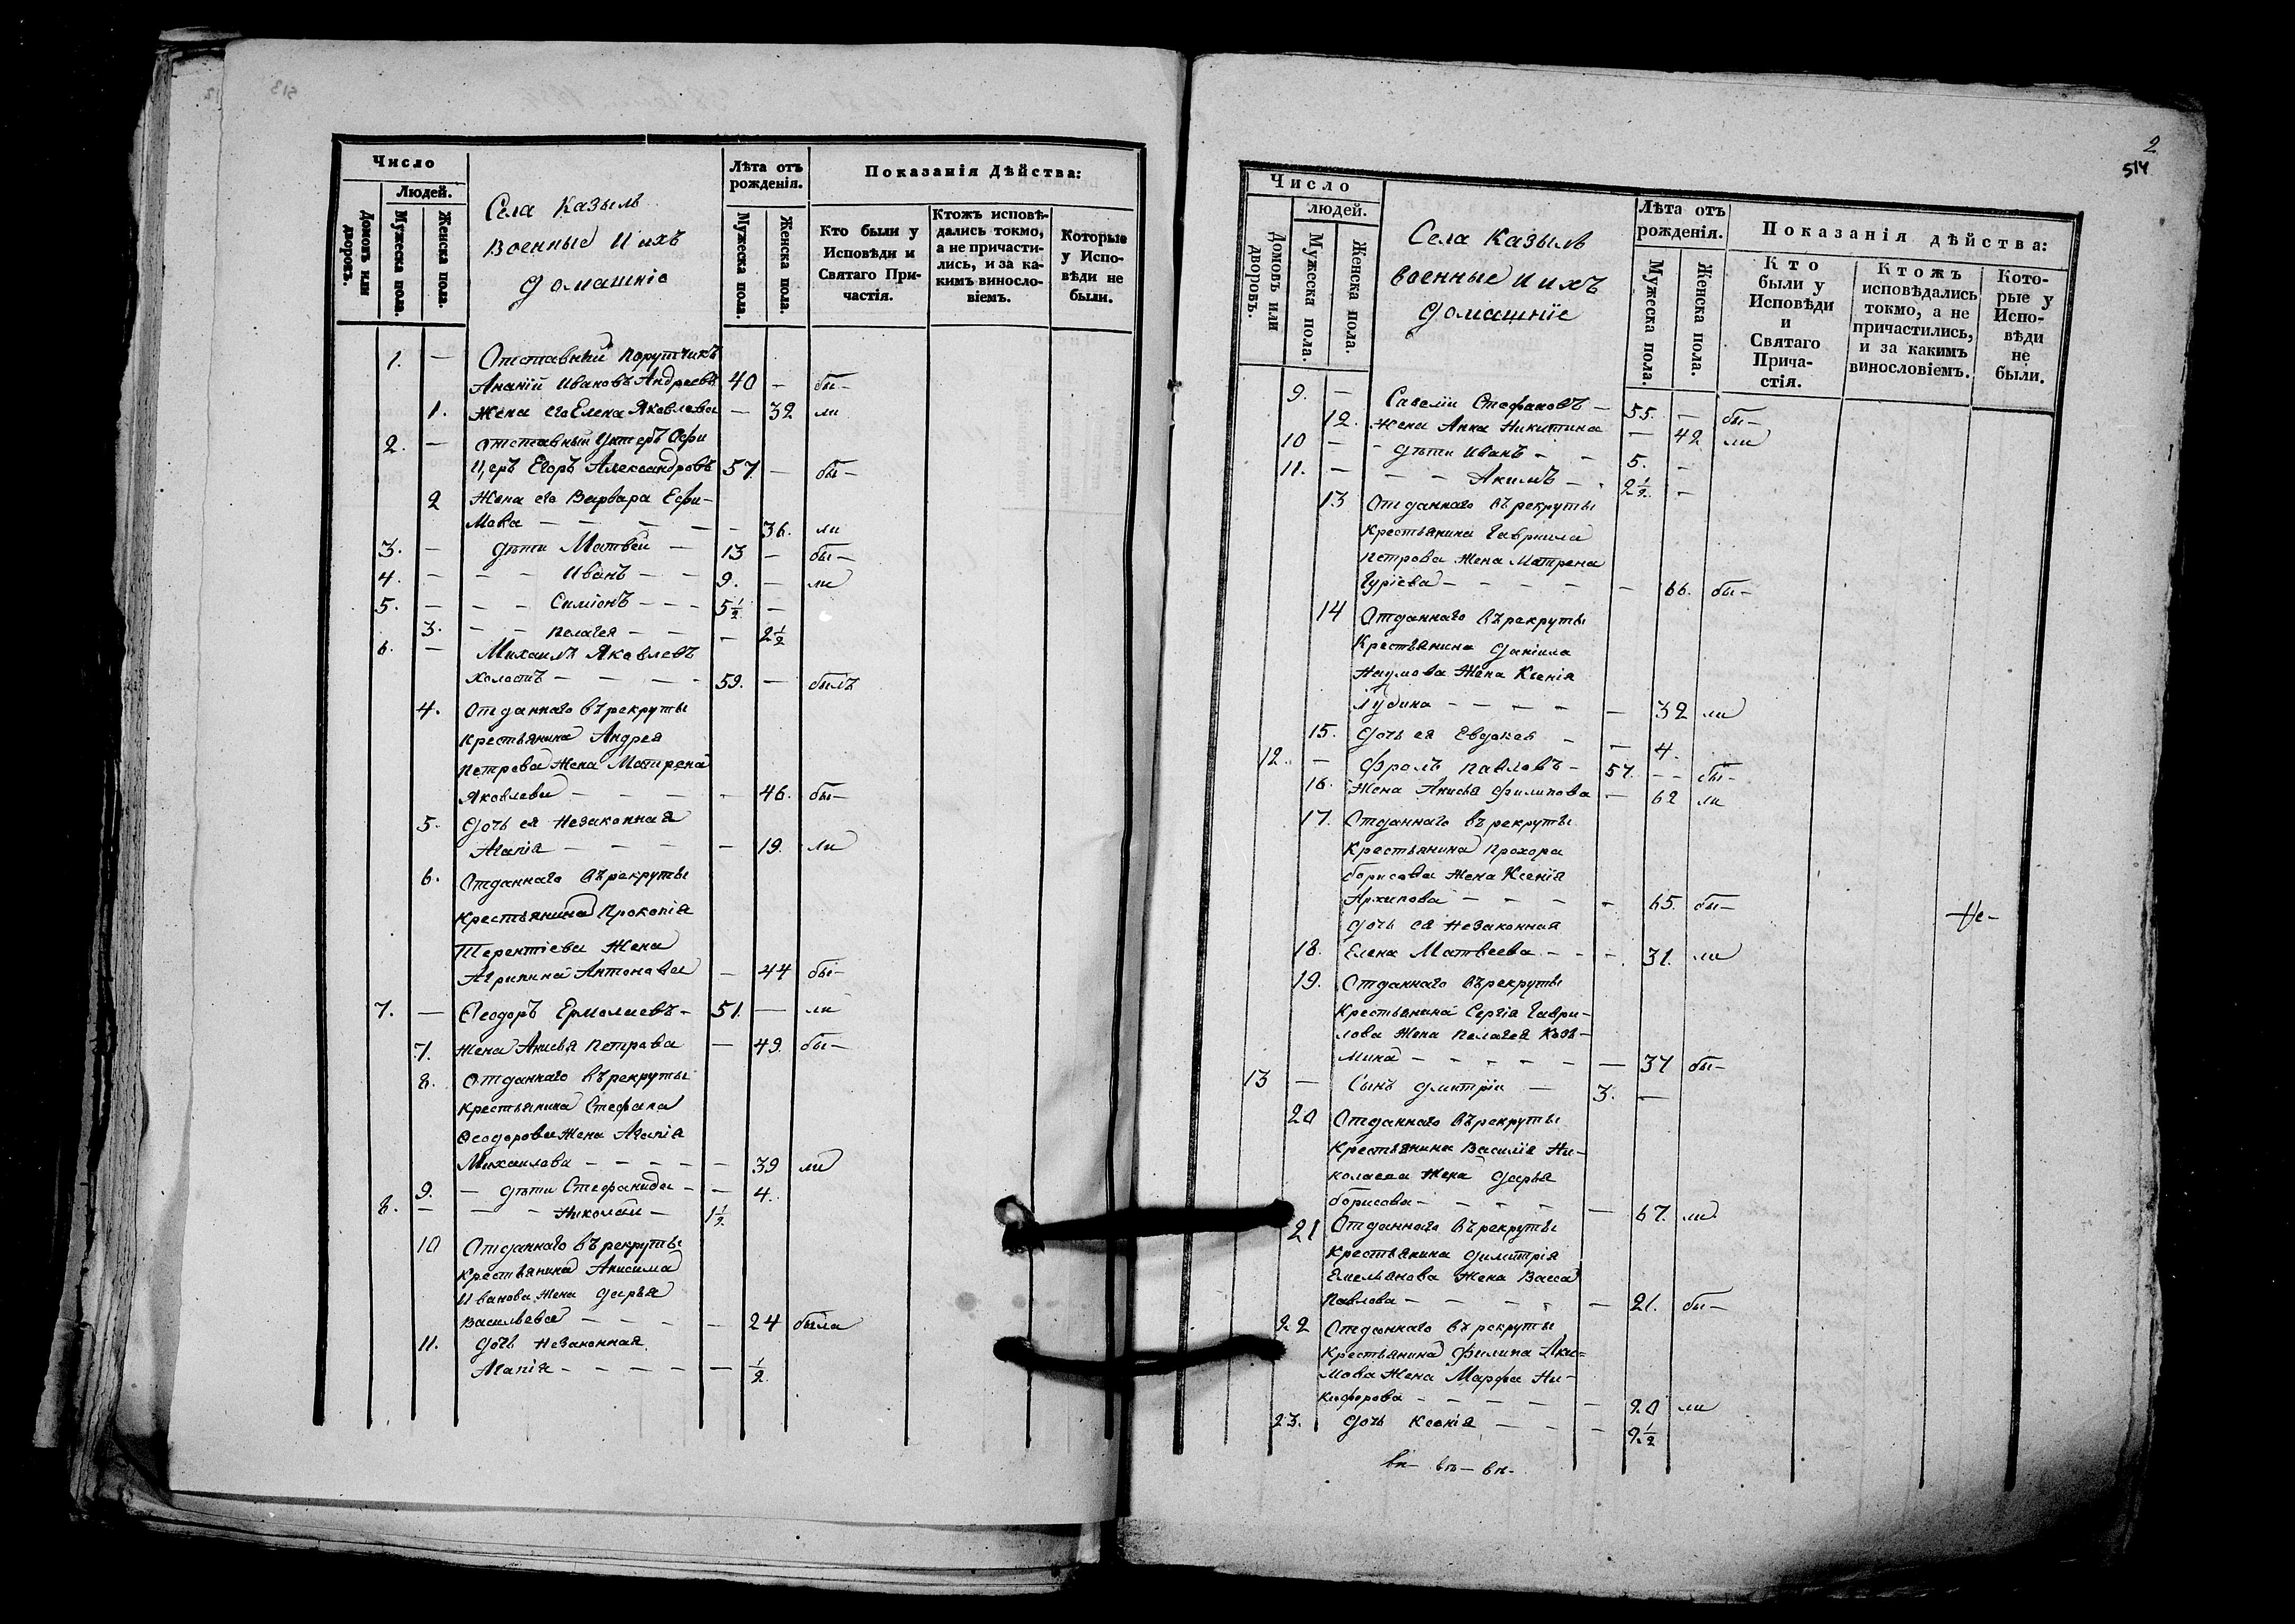 Число
Людей.
Домовъ или дворовъ.
Мужеска пола.
Женска пола.
Села Казыль
Военные и ихъ
домашніе
Лѣта отъ рожденія.
Мужеска пола.
Женска пола.
Показанія Дѣйства:
Кто были у Исповѣди и Святаго Причастія.
Ктожъ исповѣдались токмо, а не причастились, и за какимъ винословіемъ.
Которые у Исповѣди не были.
1. — Отставный порутчикъ
Ананій Ивановъ Андреевъ 40 — бы—
1. Жена его Елена Яковлева — 32 ли
2. — отставный Унтеръ Офи
церъ Егоръ Александровъ 57 — бы—
2 Жена его Варвара Ефи—
мова — — — — — 36. ли
3. — дѣти Матвей — 13 — бы—
4. — — — Иванъ — — 9. — ли
5. — — — Симіонъ — — — 5½ —
3. — — Пелагея — — — 2½
6. — Михаилъ Яковлевъ
холостъ — — — — 59. — былъ
4. Отданнаго въ рекруты
крестьянина Андрея
Петрова Жена Матрена
Яковлева — — — — 46. бы—
5. Дочь ея незаконная
Агапія — — — — 19. ли
6. Отданнаго въ рекруты
крестьянина Прокопія
Терентіева Жена
Агрипина Антонова — 44 бы—
7. — Ѳеодоръ Ермолаевъ — 51. — ли
7. Жена Анисья Петрова — 49. бы—
8. Отданнаго въ рекруты
крестьянина Стефана
Ѳеодорова Жена Агапія
Михаилова — — — — — 39 ли
9. — дѣти Стефанида — — 4.
8. — — — Николай — 1½
10 Отданнаго въ рекруты
крестьянина Анисима
Иванова Жена Дарья
Васильева — — — — 24 была
11. Дочь незаконная
Агапія — — — — — ½
2
514
Число
людей.
Домовъ или дворовъ.
Мужеска пола.
Женска пола.
Села Казыль
военные и ихъ
домашніе
Лѣта отъ рожденія.
Мужеска пола.
Женска пола.
Показанія дѣйства:
Кто были у Исповѣди и Святаго Причастія.
Ктожъ исповѣдались токмо, а не причастились, и за какимъ винословіемъ.
Которые у Исповѣди не были.
9. — Савелій Стефановъ — 55. — бы—
12. Жена Анна Никитина — 42 ли
10 — — дѣти Иванъ — — 5. —
11. — — — Акимъ — — 2½ —
13 Отданнаго въ рекруты
крестьянина Гавриила
Петрова Жена Матрена
Гуріева — — — — — 66. бы—
14 Отданнаго въ рекруты
Крестьянина Даніила
Наумова Жена Ксенія
— — — — — 32 ли
15. Дочь ея Евдокея — — 4.
12. — Фролъ Павловъ — 57. — — бы—
16. Жена Анисья Филипова — 62 ли
17. Отданнаго въ рекруты
крестьянина Прохора
борисова Жена Ксенія
Архипова — — — — 65. бы—
Дочь ея незаконная
Не—
18. Елена Матвеева — — — 31. ли
19. Отданнаго въ рекруты
Крестьянина Сергія Гаври—
лова Жена Пелагея Козь—
мина — — — — — — 37 бы—
13 — Сынъ Дмитрій — 3. —
20 Отданнаго въ рекруты
Крестьянина Василія Ни—
колаева Жена Дарья
борисова — — — — — 67. ли
21 Отданнаго въ рекруты
Крестьянина Димитрія
Емельянова Жена Васса
Павлова — — — — — 21. бы—
22 Отданнаго въ рекруты
Крестьянина Филипа Аки=
мова Жена Марфа Ни—
кифорова — — — — — 20 ли
23. Дочь Ксенія — — — 2½